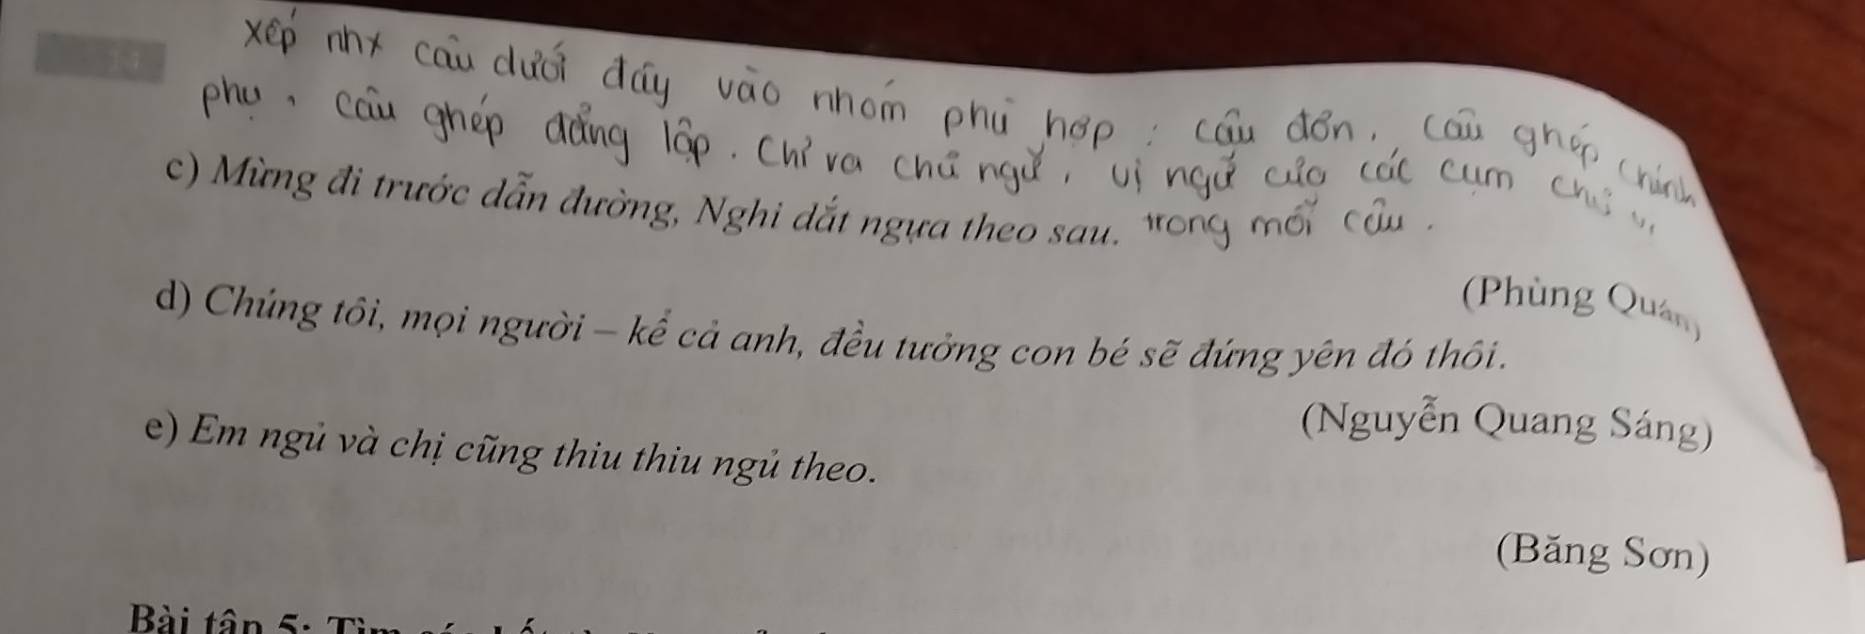 xếp nhx câu dưới đây vào nhóm phù hợp: câu đơn, câu ghép chính
phụ, câu ghép đẳng lập. Chỉ ra chủ ngữ, vị ngữ của các cụm chủ vị
c) Mừng đi trước dẫn đường, Nghi dắt ngựa theo sau. trong mỗi câu.
(Phùng Quán)
d) Chúng tôi, mọi người – kể cả anh, đều tưởng con bé sẽ đứng yên đó thôi.
(Nguyễn Quang Sáng)
e) Em ngủ và chị cũng thiu thiu ngủ theo.
(Băng Sơn)
Bài tập 5: Tìm